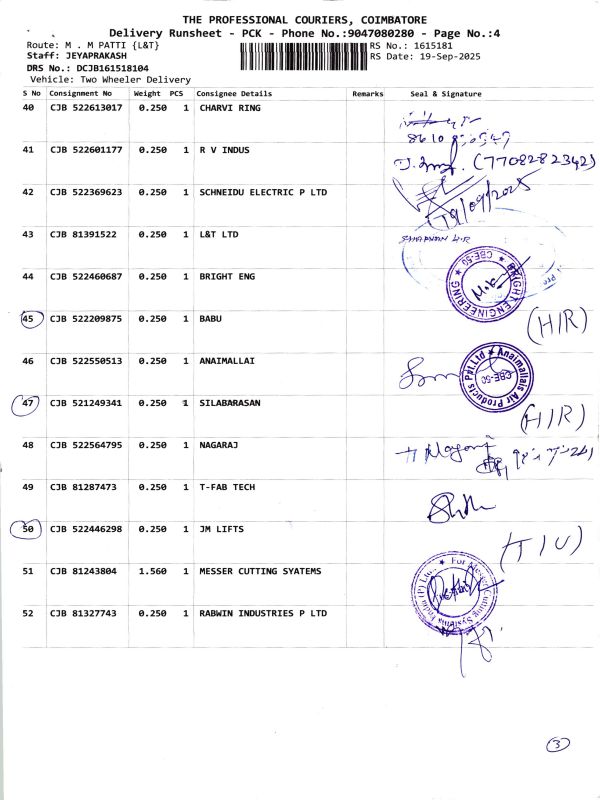 THE PROFESSIONAL COURIERS, COIMBATORE
Delivery Runsheet - PCK - Phone No.:9047080280 - Page No.:4
Route: M . M PATTI {L&T} RS No.: 1615181
Staff: JEYAPRAKASH RS Date: 19-Sep-2025
DRS No.: DCJB161518104
Vehicle: Two Wheeler Delivery
S No Consignment No Weight PCS Consignee Details Remarks Seal & Signature
40 CJB 522613017 0.250 1 CHARVI RING
41 CJB 522601177 0.250 1 R V INDUS (7708282342)
42 CJB 522369623 0.250 1 SCHNEIDU ELECTRIC P LTD 19/09/2025
43 CJB 81391522 0.250 1 L&T LTD
44 CJB 522460687 0.250 1 BRIGHT ENG BRIGHT ENGINEERING CBE-50
45 CJB 522209875 0.250 1 BABU (H/R)
46 CJB 522550513 0.250 1 ANAIMALLAI Anaimallais Air Products Pvt.Ltd CBE-50
47 CJB 521249341 0.250 1 SILABARASAN (H/R)
48 CJB 522564795 0.250 1 NAGARAJ
49 CJB 81287473 0.250 1 T-FAB TECH
50 CJB 522446298 0.250 1 JM LIFTS
51 CJB 81243804 1.560 1 MESSER CUTTING SYATEMS For Messer Cutting Systems India (P) Ltd.
52 CJB 81327743 0.250 1 RABWIN INDUSTRIES P LTD
3